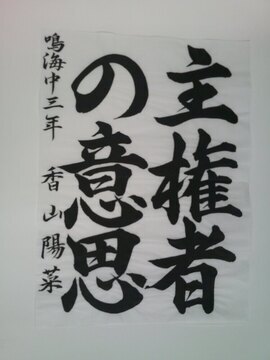 主権者
の意思
鳴海中三年 香山陽菜